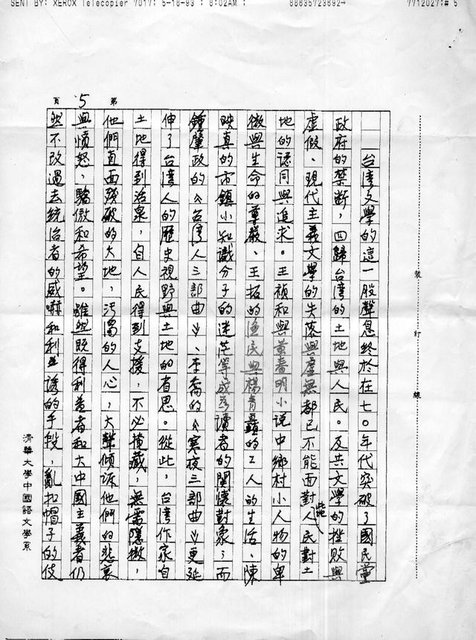 SENT BY: XEROX Telecopier 7017; 5-18-93 ; 8:02AM ; 88635723692→ 7712027;# 5
第 5 頁
台灣文學的這一股聲息終於在七○年代突破了國民黨
政府的禁斷，回歸台灣的土地與人民。反共文學的挫敗與
虛假、現代主義文學的失落與虛無都已不能面對人民對土
地的認同與追求。王禎和與黃春明小說中鄉村小人物的卑
微與生命的尊嚴、王拓的漁民與楊青矗的工人的生活、陳
映真的市鎮小知識分子的迷茫學成為讀者的關懷對象；而
鍾肇政的《台灣人三部曲》、李喬的《寒夜三部曲》更延
伸了台灣人的歷史視野與土地的省思。從此，台灣作家自
土地得到活泉，自人民得到支援，不必擔藏，無需隱微，
他們直面殘破的大地，污濁的人心，大聲傾訴他們的悲哀
與憤怒，驕傲和希望。雖然既得利益者和大中國主義者仍
然不改過去統治者的威嚇和利誘的手段，亂扣帽子的伎
清華大學中國語文學系
裝 訂 線